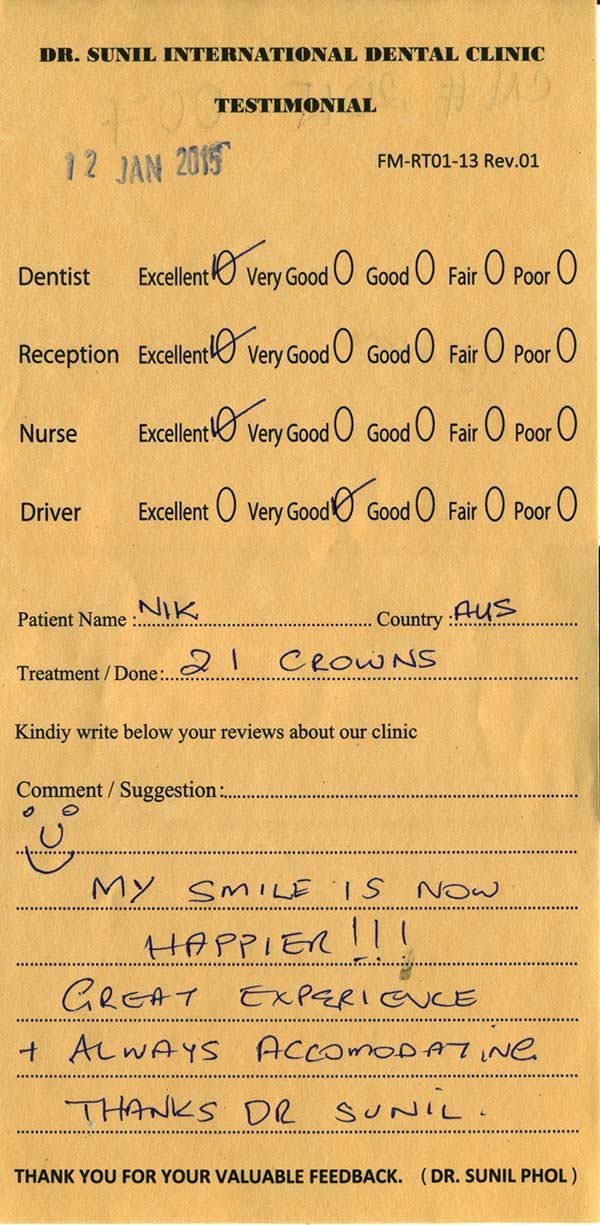 DR. SUNIL INTERNATIONAL DENTAL CLINIC
TESTIMONIAL
12 JAN 2015
FM-RT01-13 Rev.01
Dentist Excellent Very Good Good Fair Poor
Reception Excellent Very Good Good Fair Poor
Nurse Excellent Very Good Good Fair Poor
Driver Excellent Very Good Good Fair Poor
Patient Name : NIK Country : AUS
Treatment / Done : 21 CROWNS
Kindiy write below your reviews about our clinic
Comment / Suggestion :
MY SMILE IS NOW
HAPPIER !!!
GREAT EXPERIENCE
+ ALWAYS ACCOMODATING
THANKS DR SUNIL.
THANK YOU FOR YOUR VALUABLE FEEDBACK. ( DR. SUNIL PHOL )